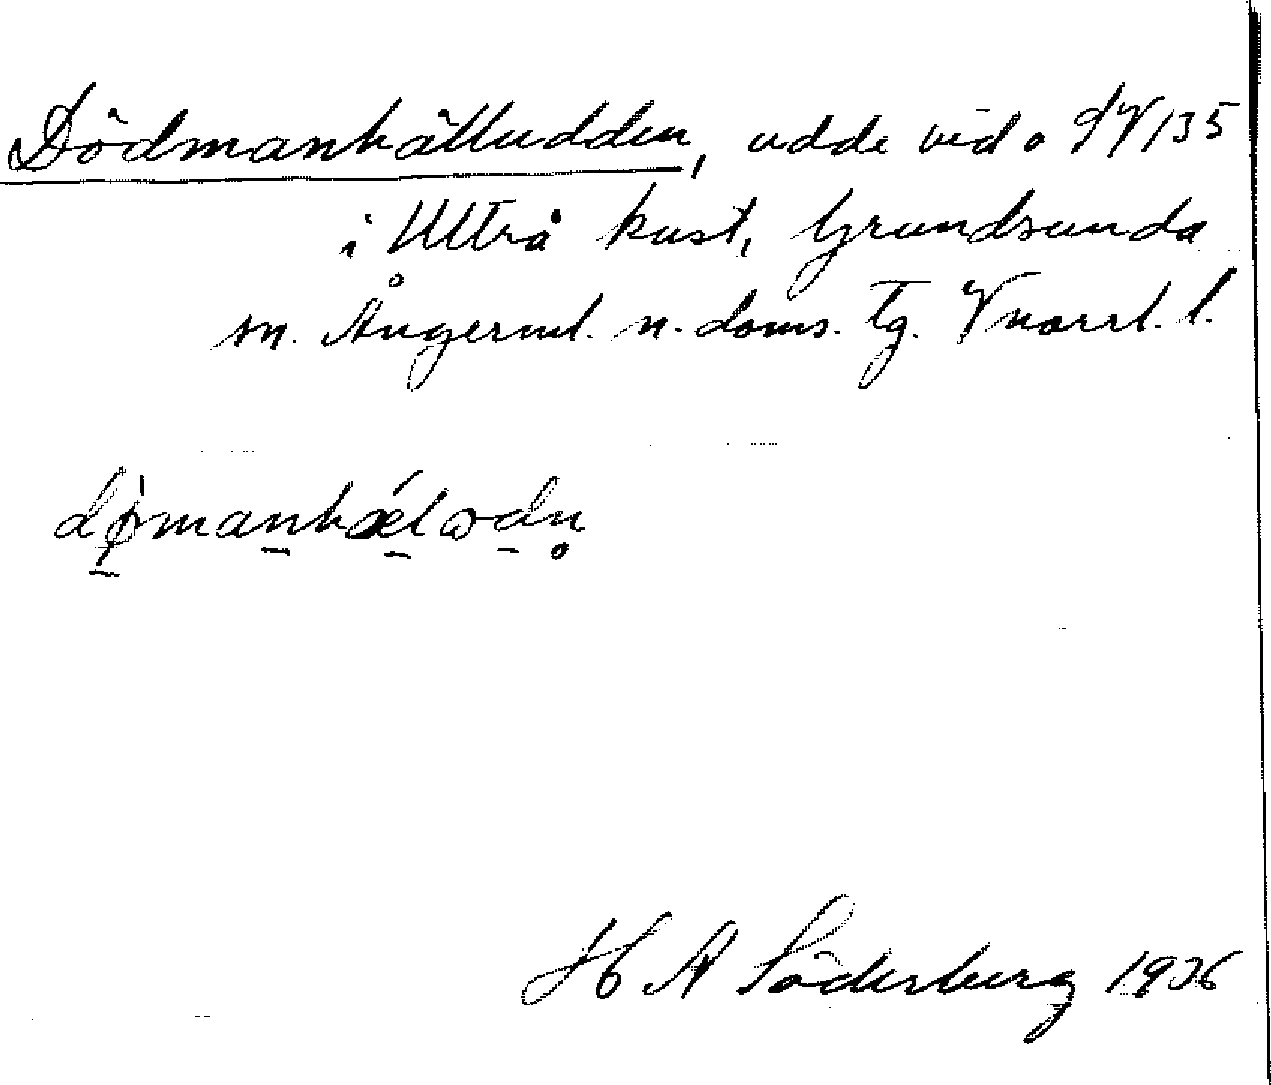 Dödmanhälludden, udde vid o JV135
i Ulfrå kust, Grundsunda
sn. Ångerml. n. doms. tg. Vnorrl. l.
dø̱mannhǽlωdn̥
H A Söderberg 1936